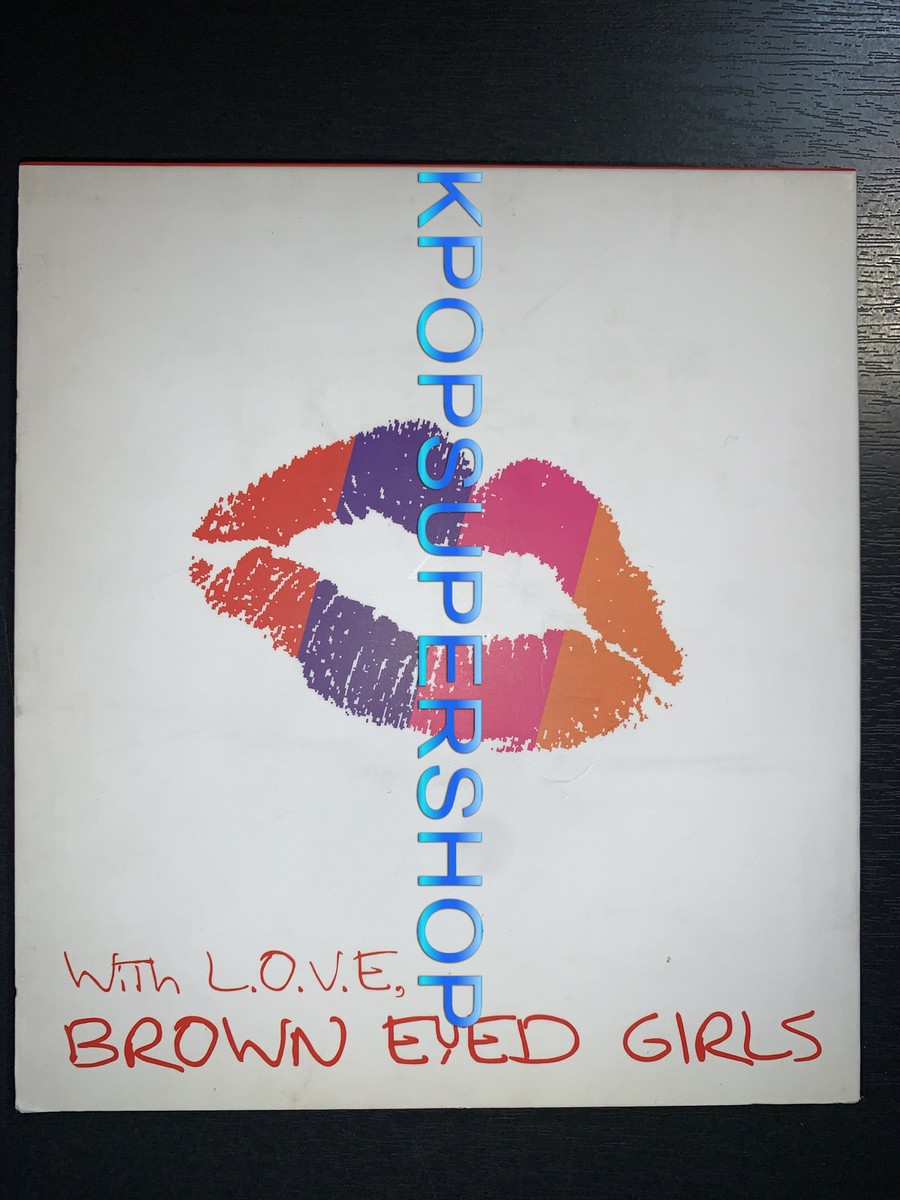 KPOPSUPERSHOP
With L.O.V.E,
BROWN EYED GIRLS